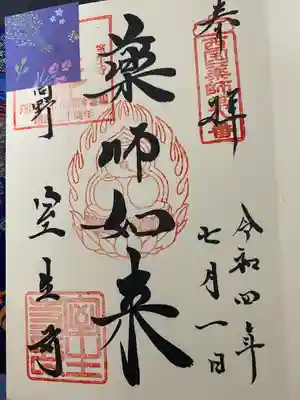 奉拝
西国薬師八番
令和四年
七月一日
薬師如来
室生寺